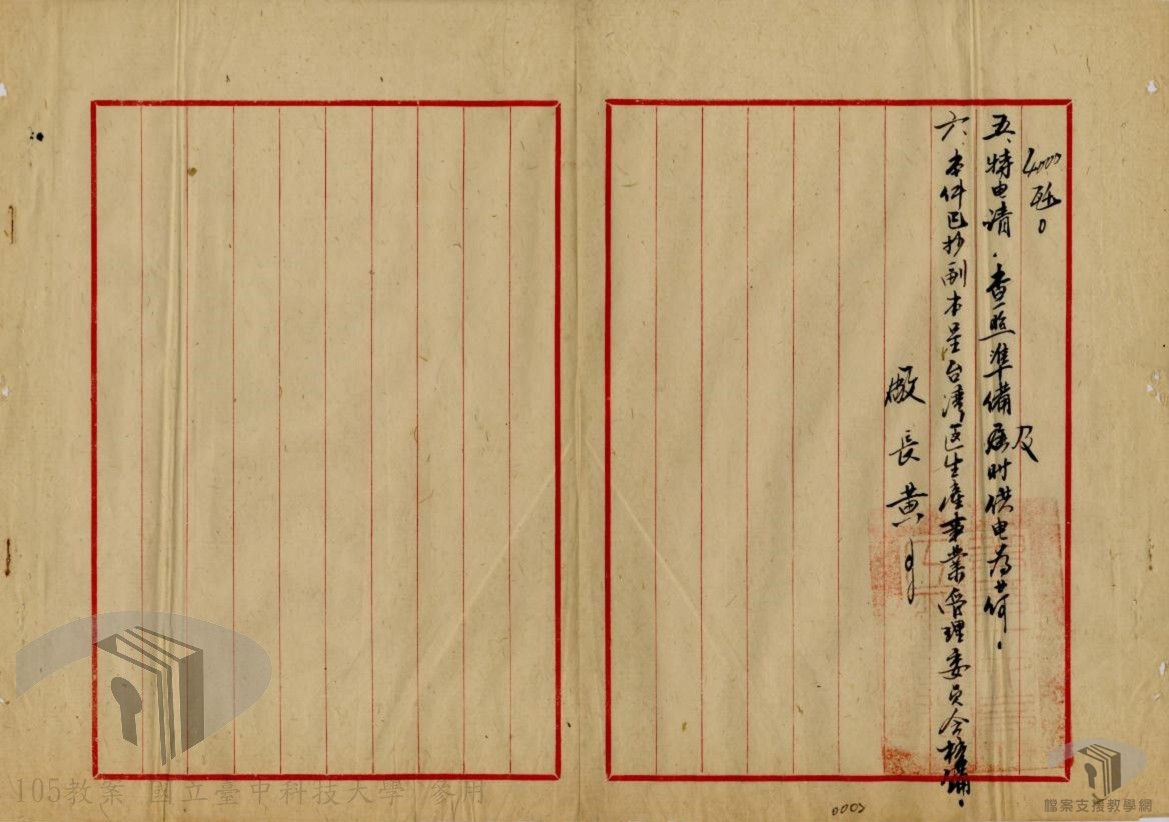 4000瓩。
五、特电请。查照準備及屆时供电為荷。
六、本件已抄副本呈台湾区生產事業管理委員会核備。
廠長黄
0003
105教案 國立臺中科技大學 參用
檔案支援教學網